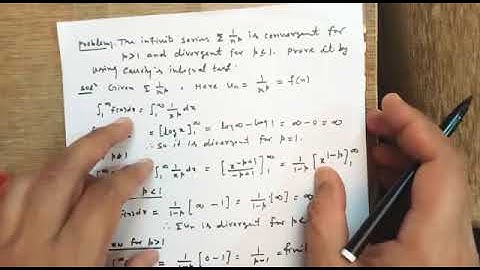 Problem. The infinite series Σ 1/n^p is convergent for
p>1 and divergent for p≤1. Prove it by
using Cauchy's integral test.
Sol^n Given Σ 1/n^p, Here Un = 1/n^p = f(n)
∫₁^∞ f(x)dx = ∫₁^∞ 1/x^p dx
= [log x]₁^∞ = log ∞ - log 1 = ∞ - 0 = ∞
∴ so it is divergent for p=1.
p≠1 ∫₁^∞ 1/x^p dx = [x^-p+1/-p+1]₁^∞ = 1/1-p [x^1-p]₁^∞
p<1
dx = 1/1-p [∞ - 1] = 1/1-p [∞] = ∞
∴ ΣUn is divergent for p<
for p>1
dx = 1/1-p [0-1] = 1/p-1 = finit